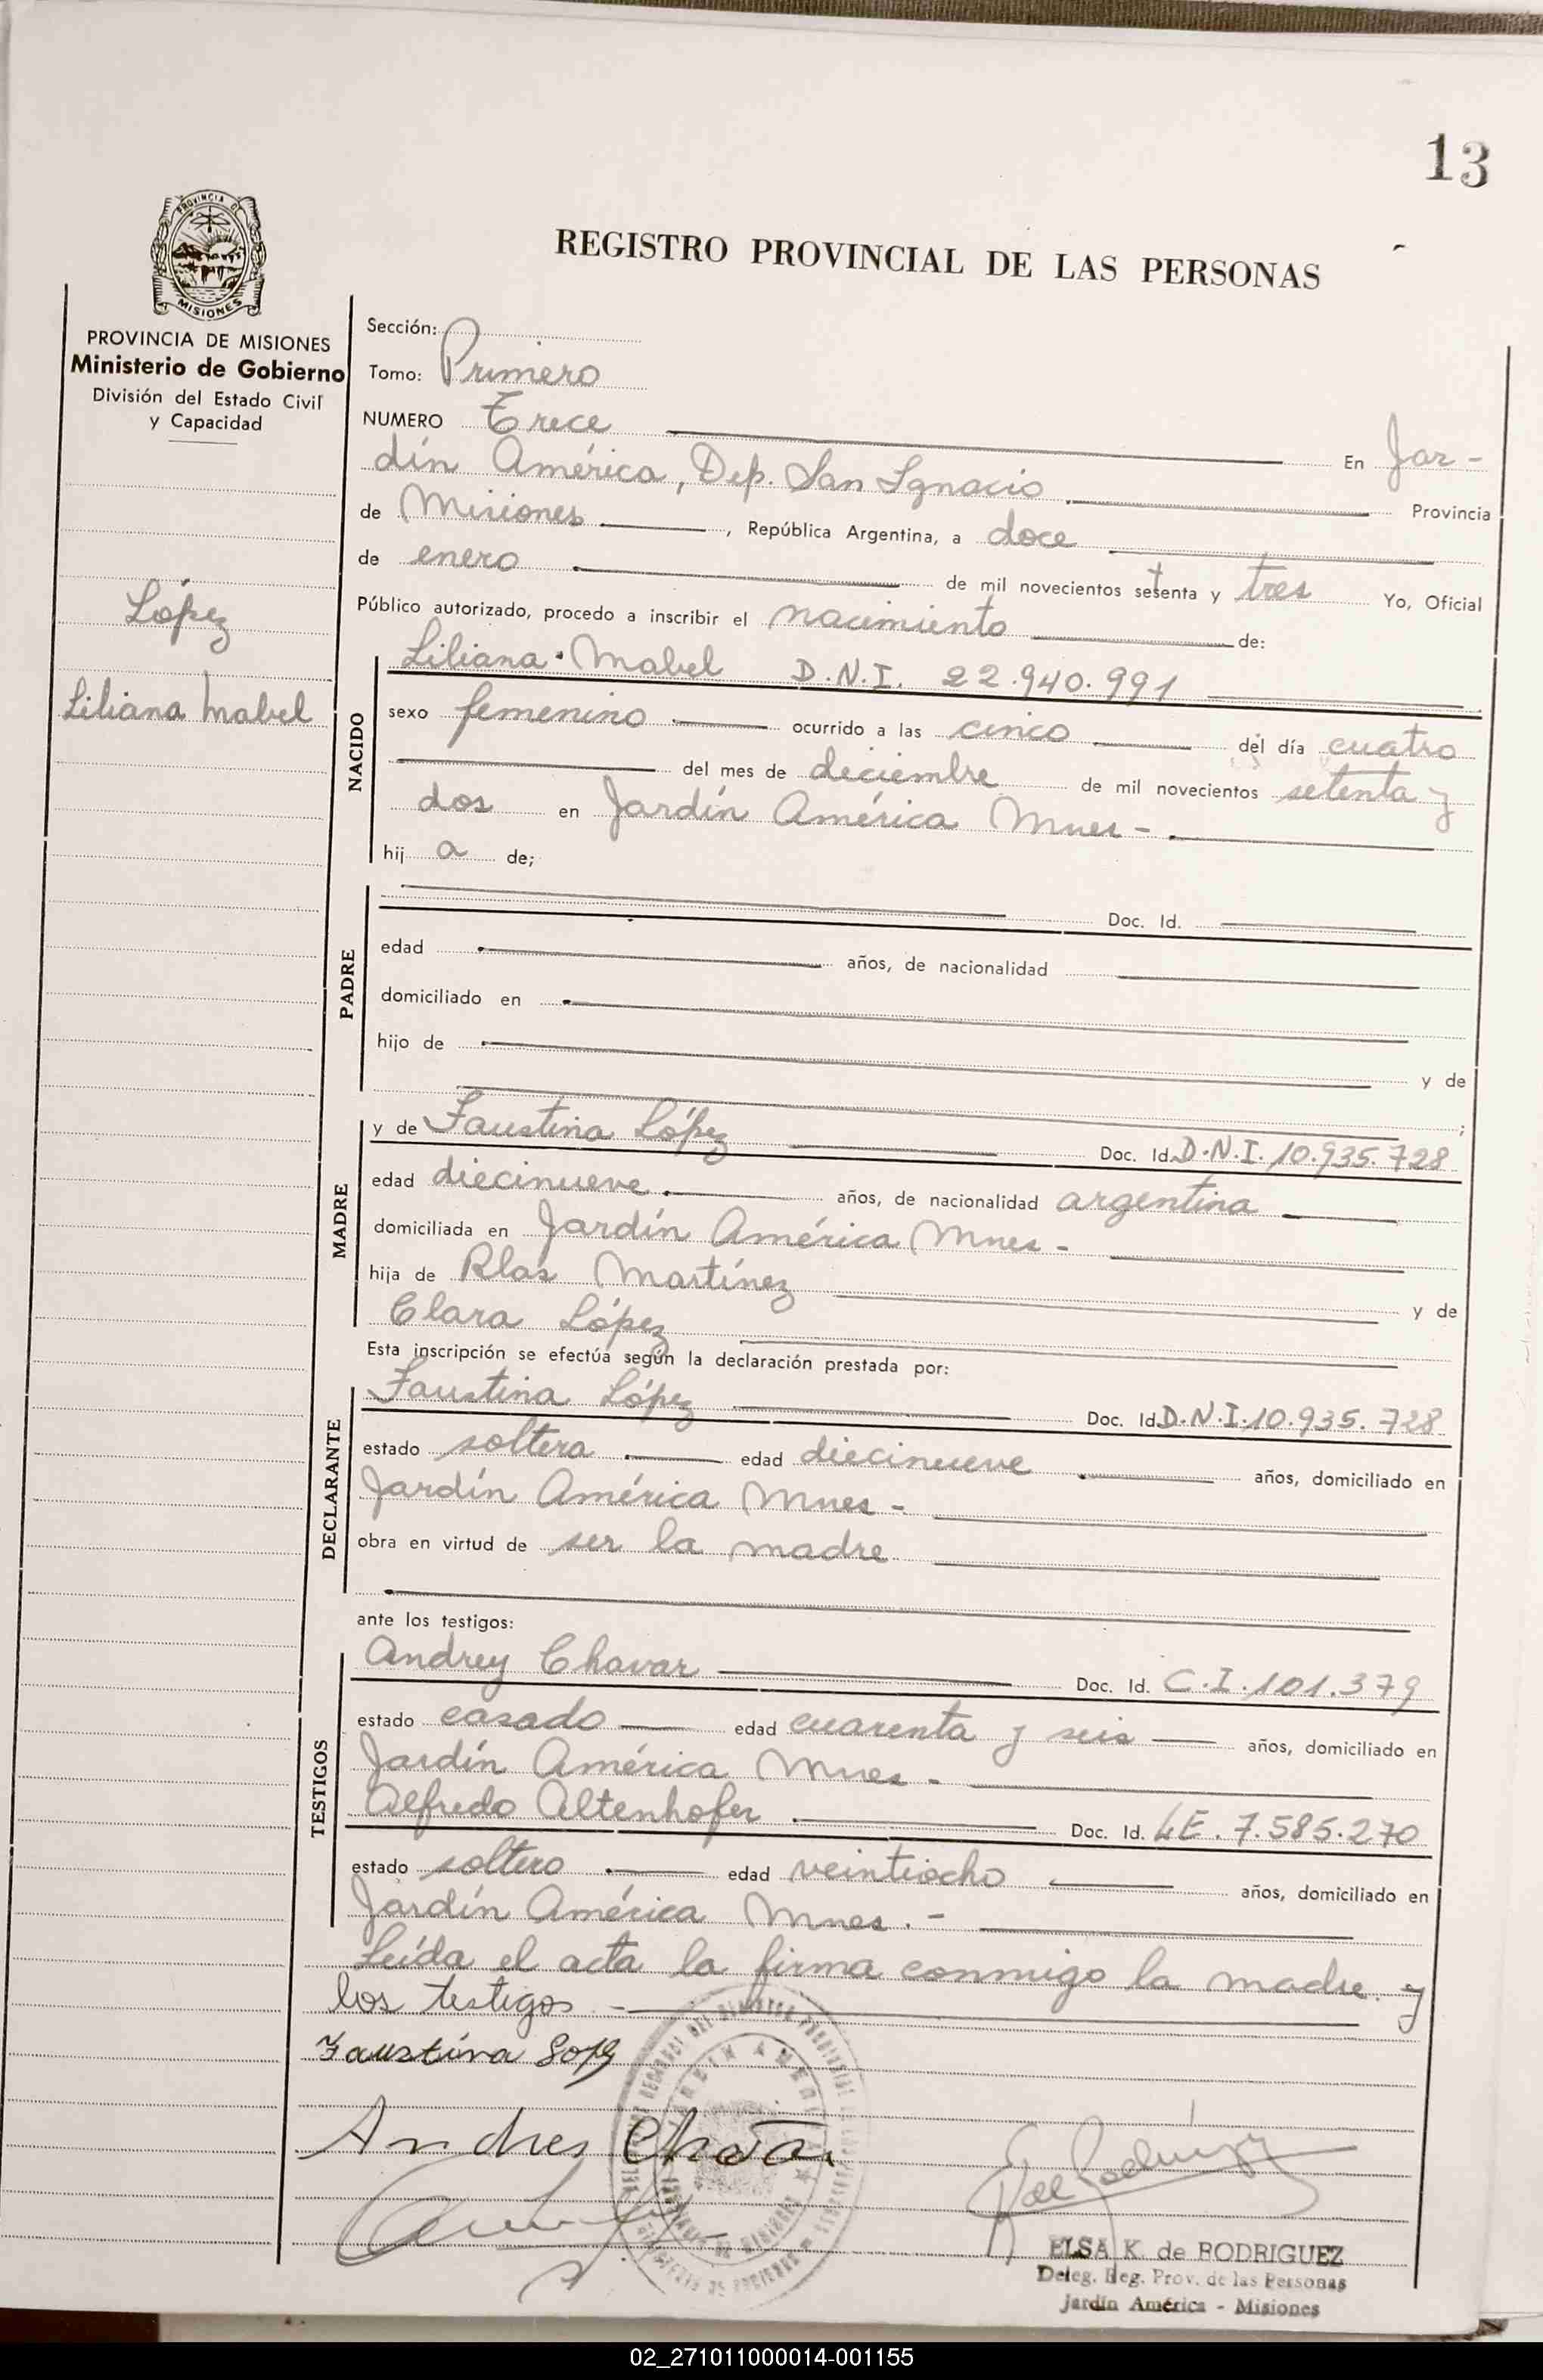 13
PROVINCIA DE
MISIONES
REGISTRO PROVINCIAL DE LAS PERSONAS
PROVINCIA DE MISIONES
Ministerio de Gobierno
División del Estado Civil
y Capacidad
López
Liliana Mabel
Sección:
Tomo: Primero
NUMERO Trece En Jar-
dín América, Dep. San Ignacio Provincia
de Misiones, República Argentina, a doce
de enero de mil novecientos setenta y tres Yo, Oficial
Público autorizado, procedo a inscribir el nacimiento de:
NACIDO
Liliana Mabel D.N.I. 22.940.991
sexo femenino ocurrido a las cinco del día cuatro
del mes de deciembre de mil novecientos setenta y
dos en Jardín América Mnes-
hij a de;
PADRE
Doc. Id.
edad años, de nacionalidad
domiciliado en
hijo de y de
;
MADRE
y de Faustina López Doc. Id. D.N.I. 10.935.728
edad diecinueve años, de nacionalidad argentina
domiciliada en Jardín América Mnes-
hija de Blas Martínez y de
Clara López
Esta inscripción se efectúa según la declaración prestada por:
DECLARANTE
Faustina López Doc. Id. D.N.I. 10.935.728
estado soltera edad diecinueve años, domiciliado en
Jardín América Mnes-
obra en virtud de ser la madre
ante los testigos:
TESTIGOS
Andrey Chavar Doc. Id. C.I. 101.379
estado casado edad cuarenta y seis años, domiciliado en
Jardín América Mnes-
Alfredo Altenhofer Doc. Id. LE. 7.585.270
estado soltero edad veintiocho años, domiciliado en
Jardín América Mnes.-
Leída el acta la firma conmigo la madre y
los testigos-
Faustina
Andres
JARDIN AMERICA
ELSA K. de RODRIGUEZ
Deleg. Reg. Prov. de las Personas
Jardín América - Misiones
02_271011000014-001155